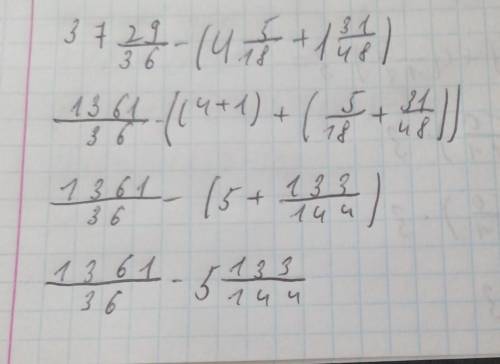 37 29/36 - (4 5/18 + 1 31/48)
1361/36 - ((4+1) + (5/18 + 31/48))
1361/36 - (5 + 133/144)
1361/36 - 5 133/144